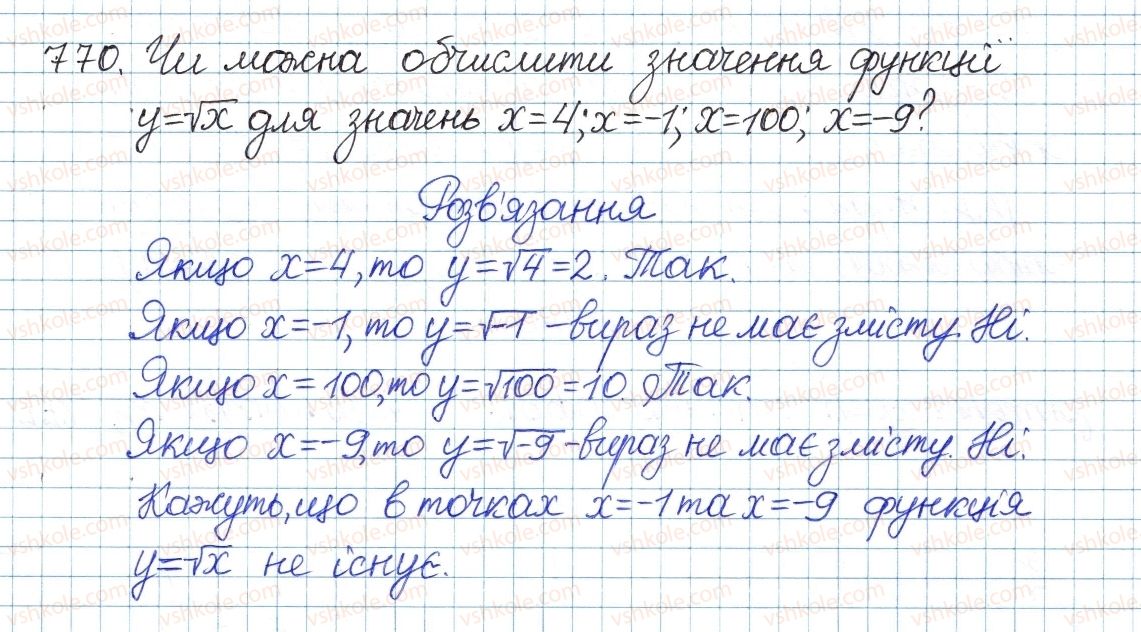 770. Чи можна обчислити значення функції
y=√x для значень x=4; x=-1; x=100; x=-9?
Розв'язання
Якщо x=4, то y=√4=2. Так.
Якщо x=-1, то y=√-1 - вираз не має змісту. Ні.
Якщо x=100, то y=√100=10. Так.
Якщо x=-9, то y=√-9 - вираз не має змісту. Ні.
Кажуть, що в точках x=-1 та x=-9 функція
y=√x не існує.